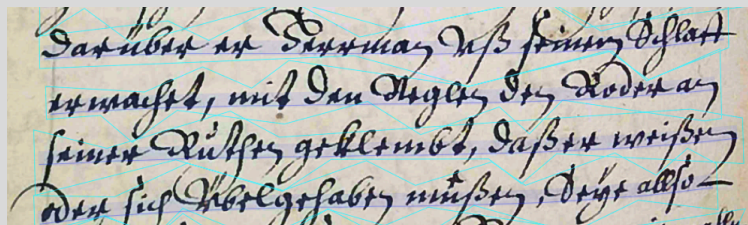 darüber er Herrman Uß seinem Schlaff
erwachet, mit den Neglen den Koder an
seiner Rüthen geklembt, daß er weißen
oder sich Übelgehaben müßen, Seye allso